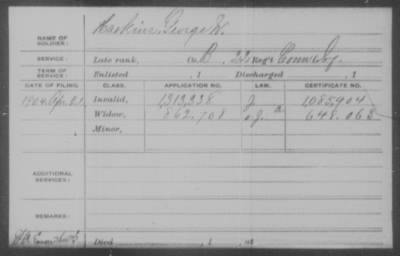 NAME OF SOLDIER: Haskins, George W.
SERVICE: Late rank, Co. B, 22 Reg't Conn. Inf.
TERM OF SERVICE: Enlisted , 1 Discharged , 1
DATE OF FILING. CLASS. APPLICATION NO. LAW. CERTIFICATE NO.
1904 Invalid, 1,313,338 1085904
Widow, 862,708 648.063
Minor,
ADDITIONAL SERVICES:
REMARKS:
Died , 1